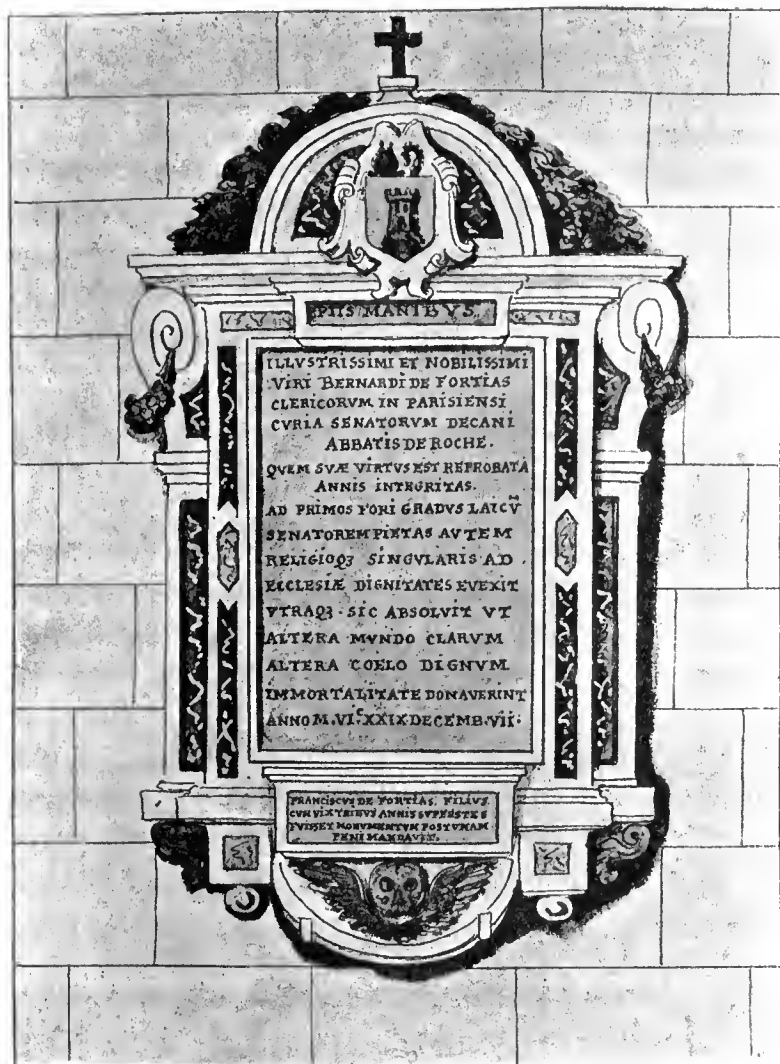 PIIS MANIBVS
ILLVSTRISSIMI ET NOBILISSIMI
VIRI BERNARDI DE FORTIAS
CLERICORVM IN PARISIENSI
CVRIA SENATORVM DECANI
ABBATIS DE ROCHE.
QVEM SVÆ VIRTVS EST REPROBATA
ANNIS INTEGRITAS.
AD PRIMOS FORI GRADVS LAICV̄
SENATOREM PIETAS AVTEM
RELIGIOQꝫ SINGVLARIS AD
ECCLESIÆ DIGNITATES EVEXIT
VTRAQꝫ SIC ABSOLVIT VT
ALTERA MVNDO CLARVM
ALTERA COELO DIGNVM
IMMORTALITATE DONAVERINT
ANNO M.VIᶜXXIX DECEMB.VII.
FRANCISCVS DE FORTIAS. FILIVS.
CVM VIX TRIBVS ANNIS SVPERSTES
FVISSET MONVMENTVM
MANDAVIT.